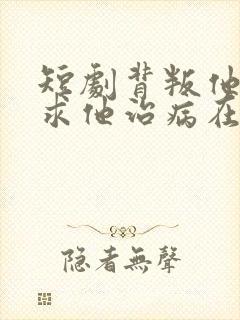 短劇背叛他
求他治病在
隱者無聲